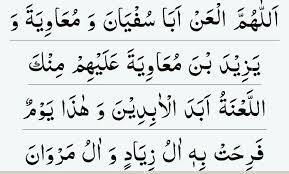 اَللّٰهُمَّ الْعَنْ اَبَا سُفْيَانَ وَ مُعَاوِيَةَ وَ
يَزِيْدَ بْنَ مُعَاوِيَةَ عَلَيْهِمْ مِنْكَ
اللَّعْنَةُ اَبَدَ الْاٰبِدِيْنَ وَ هٰذَا يَوْمٌ
فَرِحَتْ بِهٖ اٰلُ زِيَادٍ وَ اٰلُ مَرْوَانَ